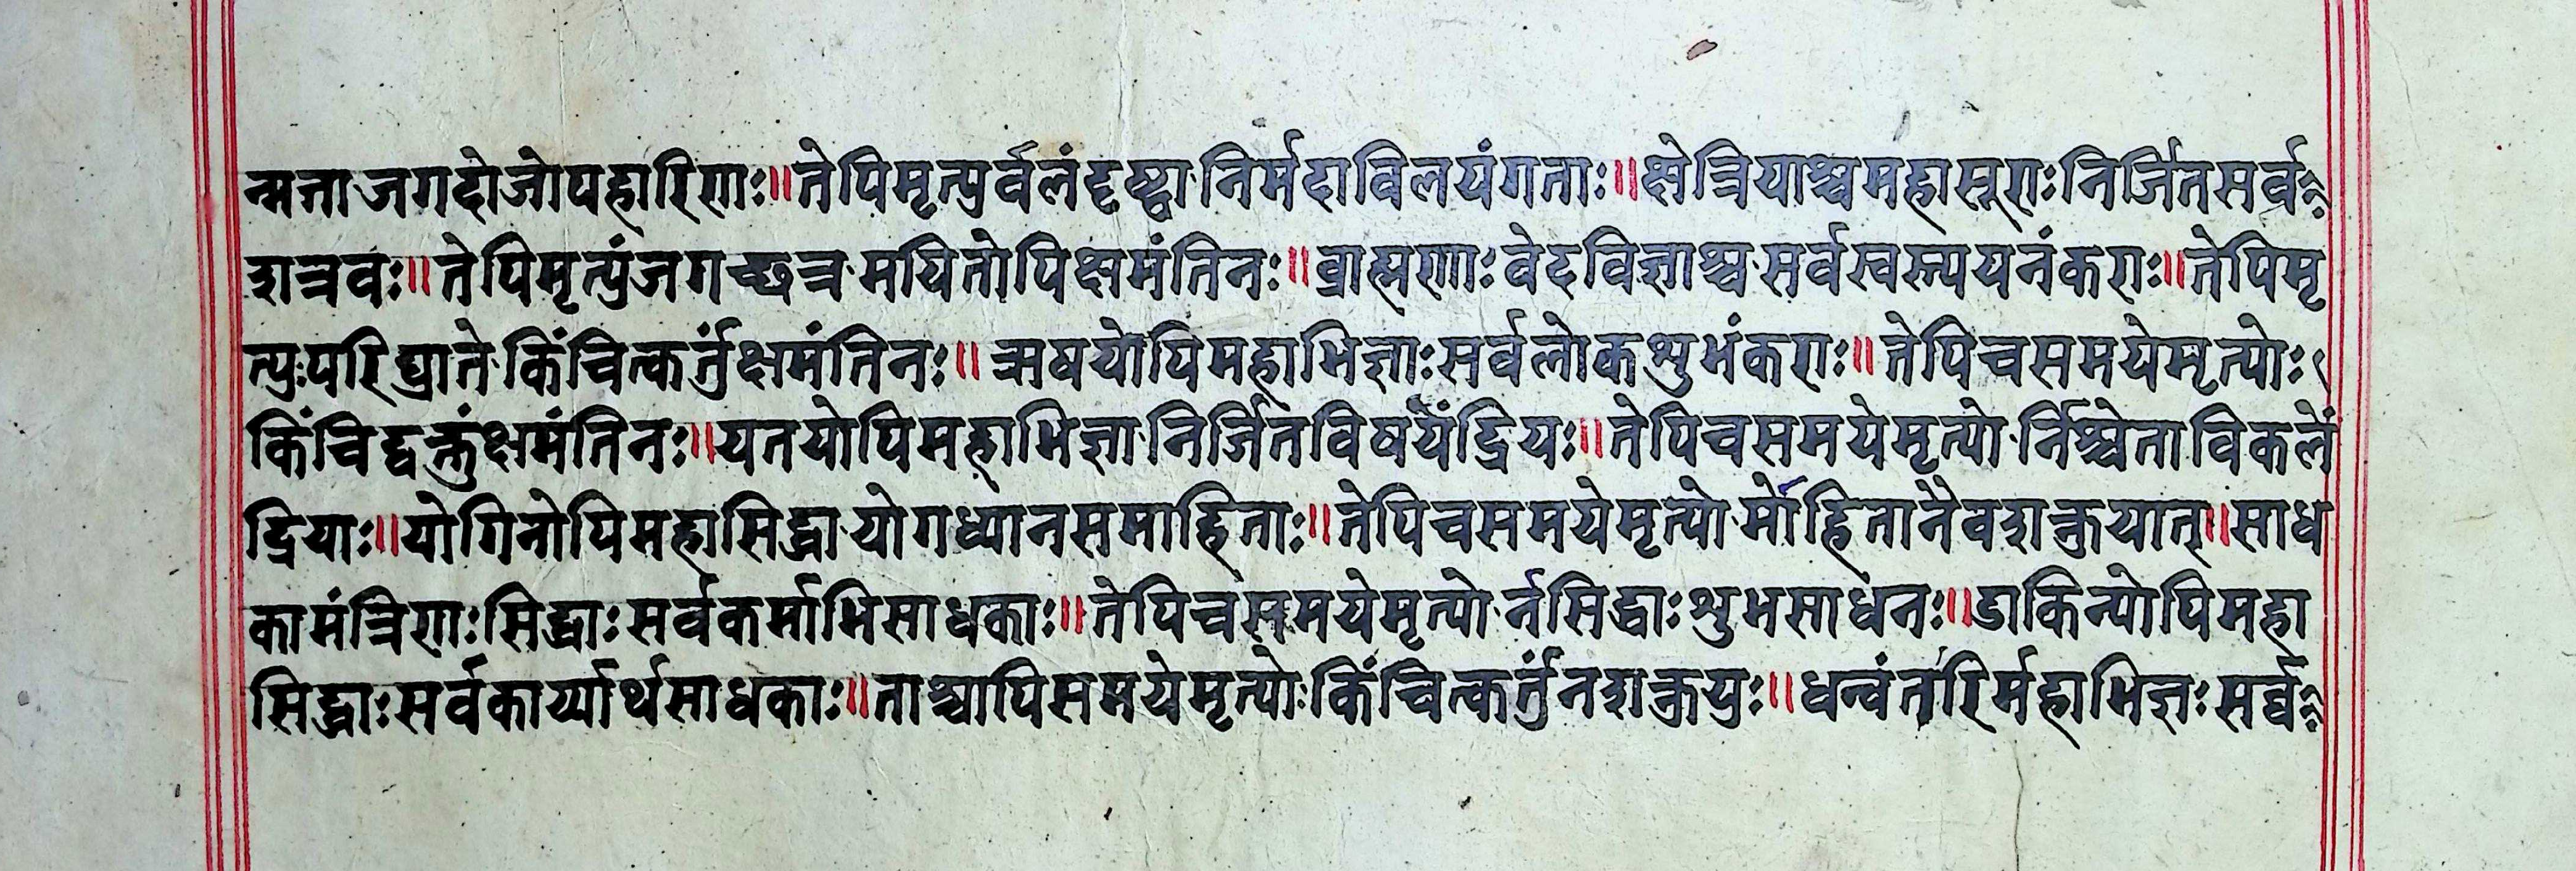 न्मत्ताजगदोजोपहारिणाः॥तेपिमृत्पुर्वलंदृष्ट्वानिर्मदाविलयंगताः॥क्षेत्रियाश्चमहासूराःनिर्जितसर्व
शत्रवः॥तेपिमृत्पुंजगच्छत्रमयितोपिक्षमंतिनः॥ब्राह्मणाःवेदविज्ञाश्चसर्वस्वस्त्पयनंकराः॥तेपिमृ
त्पुःपरिघ्रातेकिंचित्कर्तुंक्षमंतिनः॥ऋषयोपिमहाभिज्ञाःसर्वलोकशुभंकराः॥तेपिचसमयेमृत्योः
किंचिद्वक्तुंक्षमंतिनः॥यतयोपिमहाभिज्ञानिर्जितविषयेंद्रियः॥तेपिचसमयेमृत्योर्निश्चेताविकलें
द्रियाः॥योगिनोपिमहासिद्धायोगध्यानसमाहिताः॥तेपिचसमयेमृत्योर्मोहितानैवशक्नुयात्॥साध
कामंत्रिणाःसिद्धाःसर्वकर्माभिसाधकाः॥तेपिचसमयेमृत्योर्नसिद्धाःशुभसाधनः॥डाकिन्योपिमहा
सिद्धाःसर्वकार्य्यार्थसाधकाः॥ताश्चापिसमयेमृत्योःकिंचित्कर्तुंनशक्नुयुः॥धन्वंतरिर्महाभिज्ञःसर्व्व